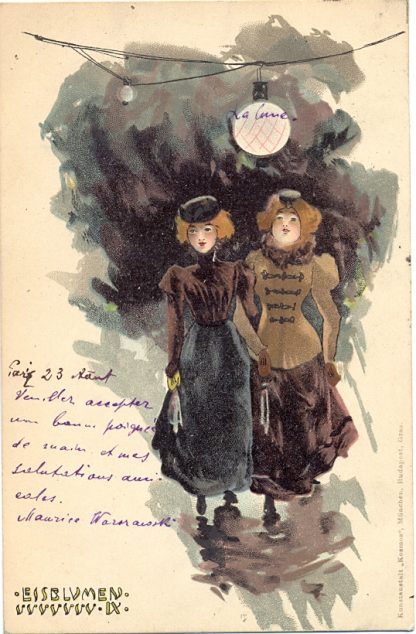 La lune.
23 Août
Veuillez accepter
une bonne poignée
de main et mes
salutations ami-
cales.
Maurice
EISBLVMEN
IX.
Kunstanstalt „Kosmos“, München, Budapest, Graz.